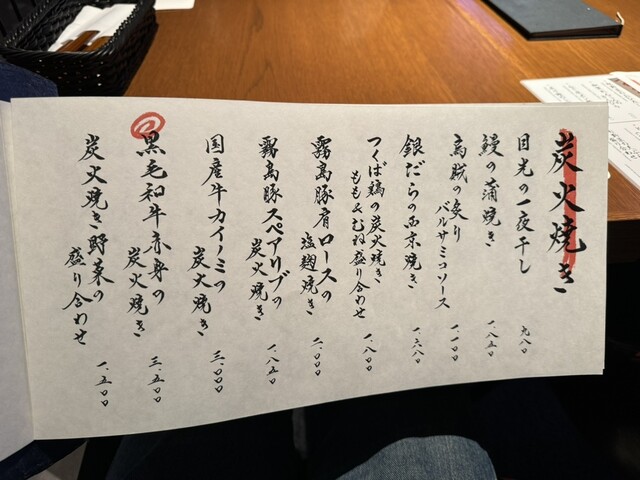 炭火焼き
目光の一夜干し 九八〇
鰻の蒲焼き 一、八五〇
烏賊の炙り
バルサミコソース 一、一〇〇
銀だらの西京焼き 一、六八〇
つくば鶏の炭火焼き
ももむね盛り合わせ 一、八〇〇
霧島豚肩ロースの
塩麹焼き 二、〇〇〇
霧島豚スペアリブの
炭火焼き 一、八五〇
国産牛カイノミの
炭火焼き 三、〇〇〇
黒毛和牛赤身の
炭火焼き 三、五〇〇
炭火焼き野菜の
盛り合わせ 一、五〇〇